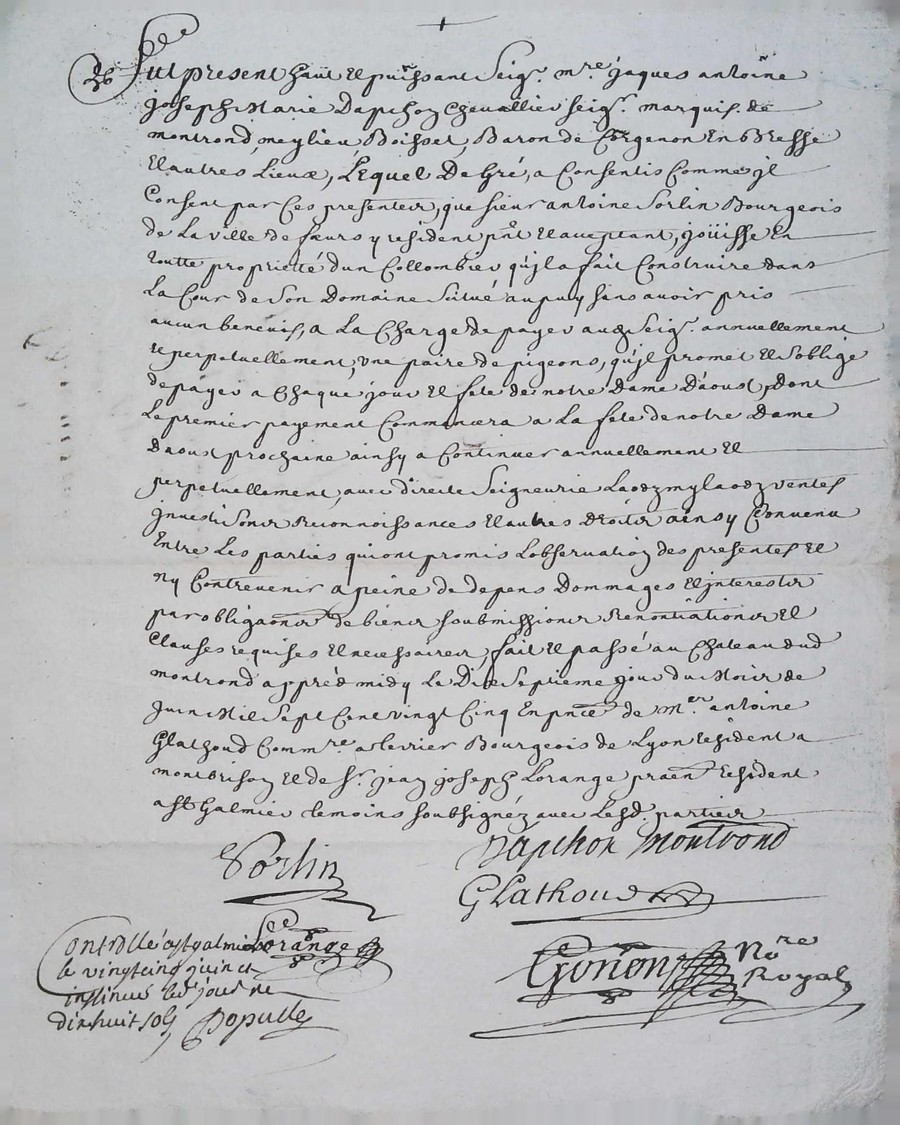 Fut present haut et puissant Seigr. mre. jaques antoine
joseph Marie Dapchon Chevallier seigr. marquis de
montrond, meylieu Boisset, Baron de Corgenon En Bresse
Et autres Lieux, Lequel De Gré, a Consentis Comme jl
Consent par Ces presentes, que sieur antoine Sorlin Bourgeois
de La ville de feurs y resident pnt. Et acceptant, joüisse En
toutte proprietté dun Collombier qu'jl a fait Construire dans
La Cour de Son Domaine Scitué au puy sans avoir pris
aucun benevis, a La Charge de payer aud. Seigr. annuellement
et perpetuellement, vne paire de pigeons, qu'jl promet Et Soblige
de payer a Chaque jour Et fete de notre Dame D'aoust, Dont
Le premier payement Commencera a La fete de notre Dame
Daoust prochaine ainsy a Continuer annuellement Et
perpetuellement, avec directe Seigneurie Laodz mylaodz ventes
jnvestisons Reconnoissances Et autres Droits ainsy Convenu
Entre Les parties qui ont promis Lobservation des presentes Et
Ny Contrevenir a peine de depens Dommages Et jnterests
par obligaons de biens soubmissions Renontiations Et
Clauses requises Et necessaires, fait Et passé au Chateau dud
montrond apprés midy Le Dix Septieme jour du Mois de
juin Mil Sept Cent vingt Cinq En pnce de mer. antoine
Glathoud Commre a terrier Bourgeois de Lyon resident a
montbrison Et de Sr. jean joseph Lorange praen resident
a St Galmier temoins soubsignéz avec Lesd. parties
Sorlin
Dapchon Montrond
Glathoud
Lorange
Gonon Nre
Royal
Controllé a st galmier
le vingt cinq juin et
insinué led jour
dix huit sols